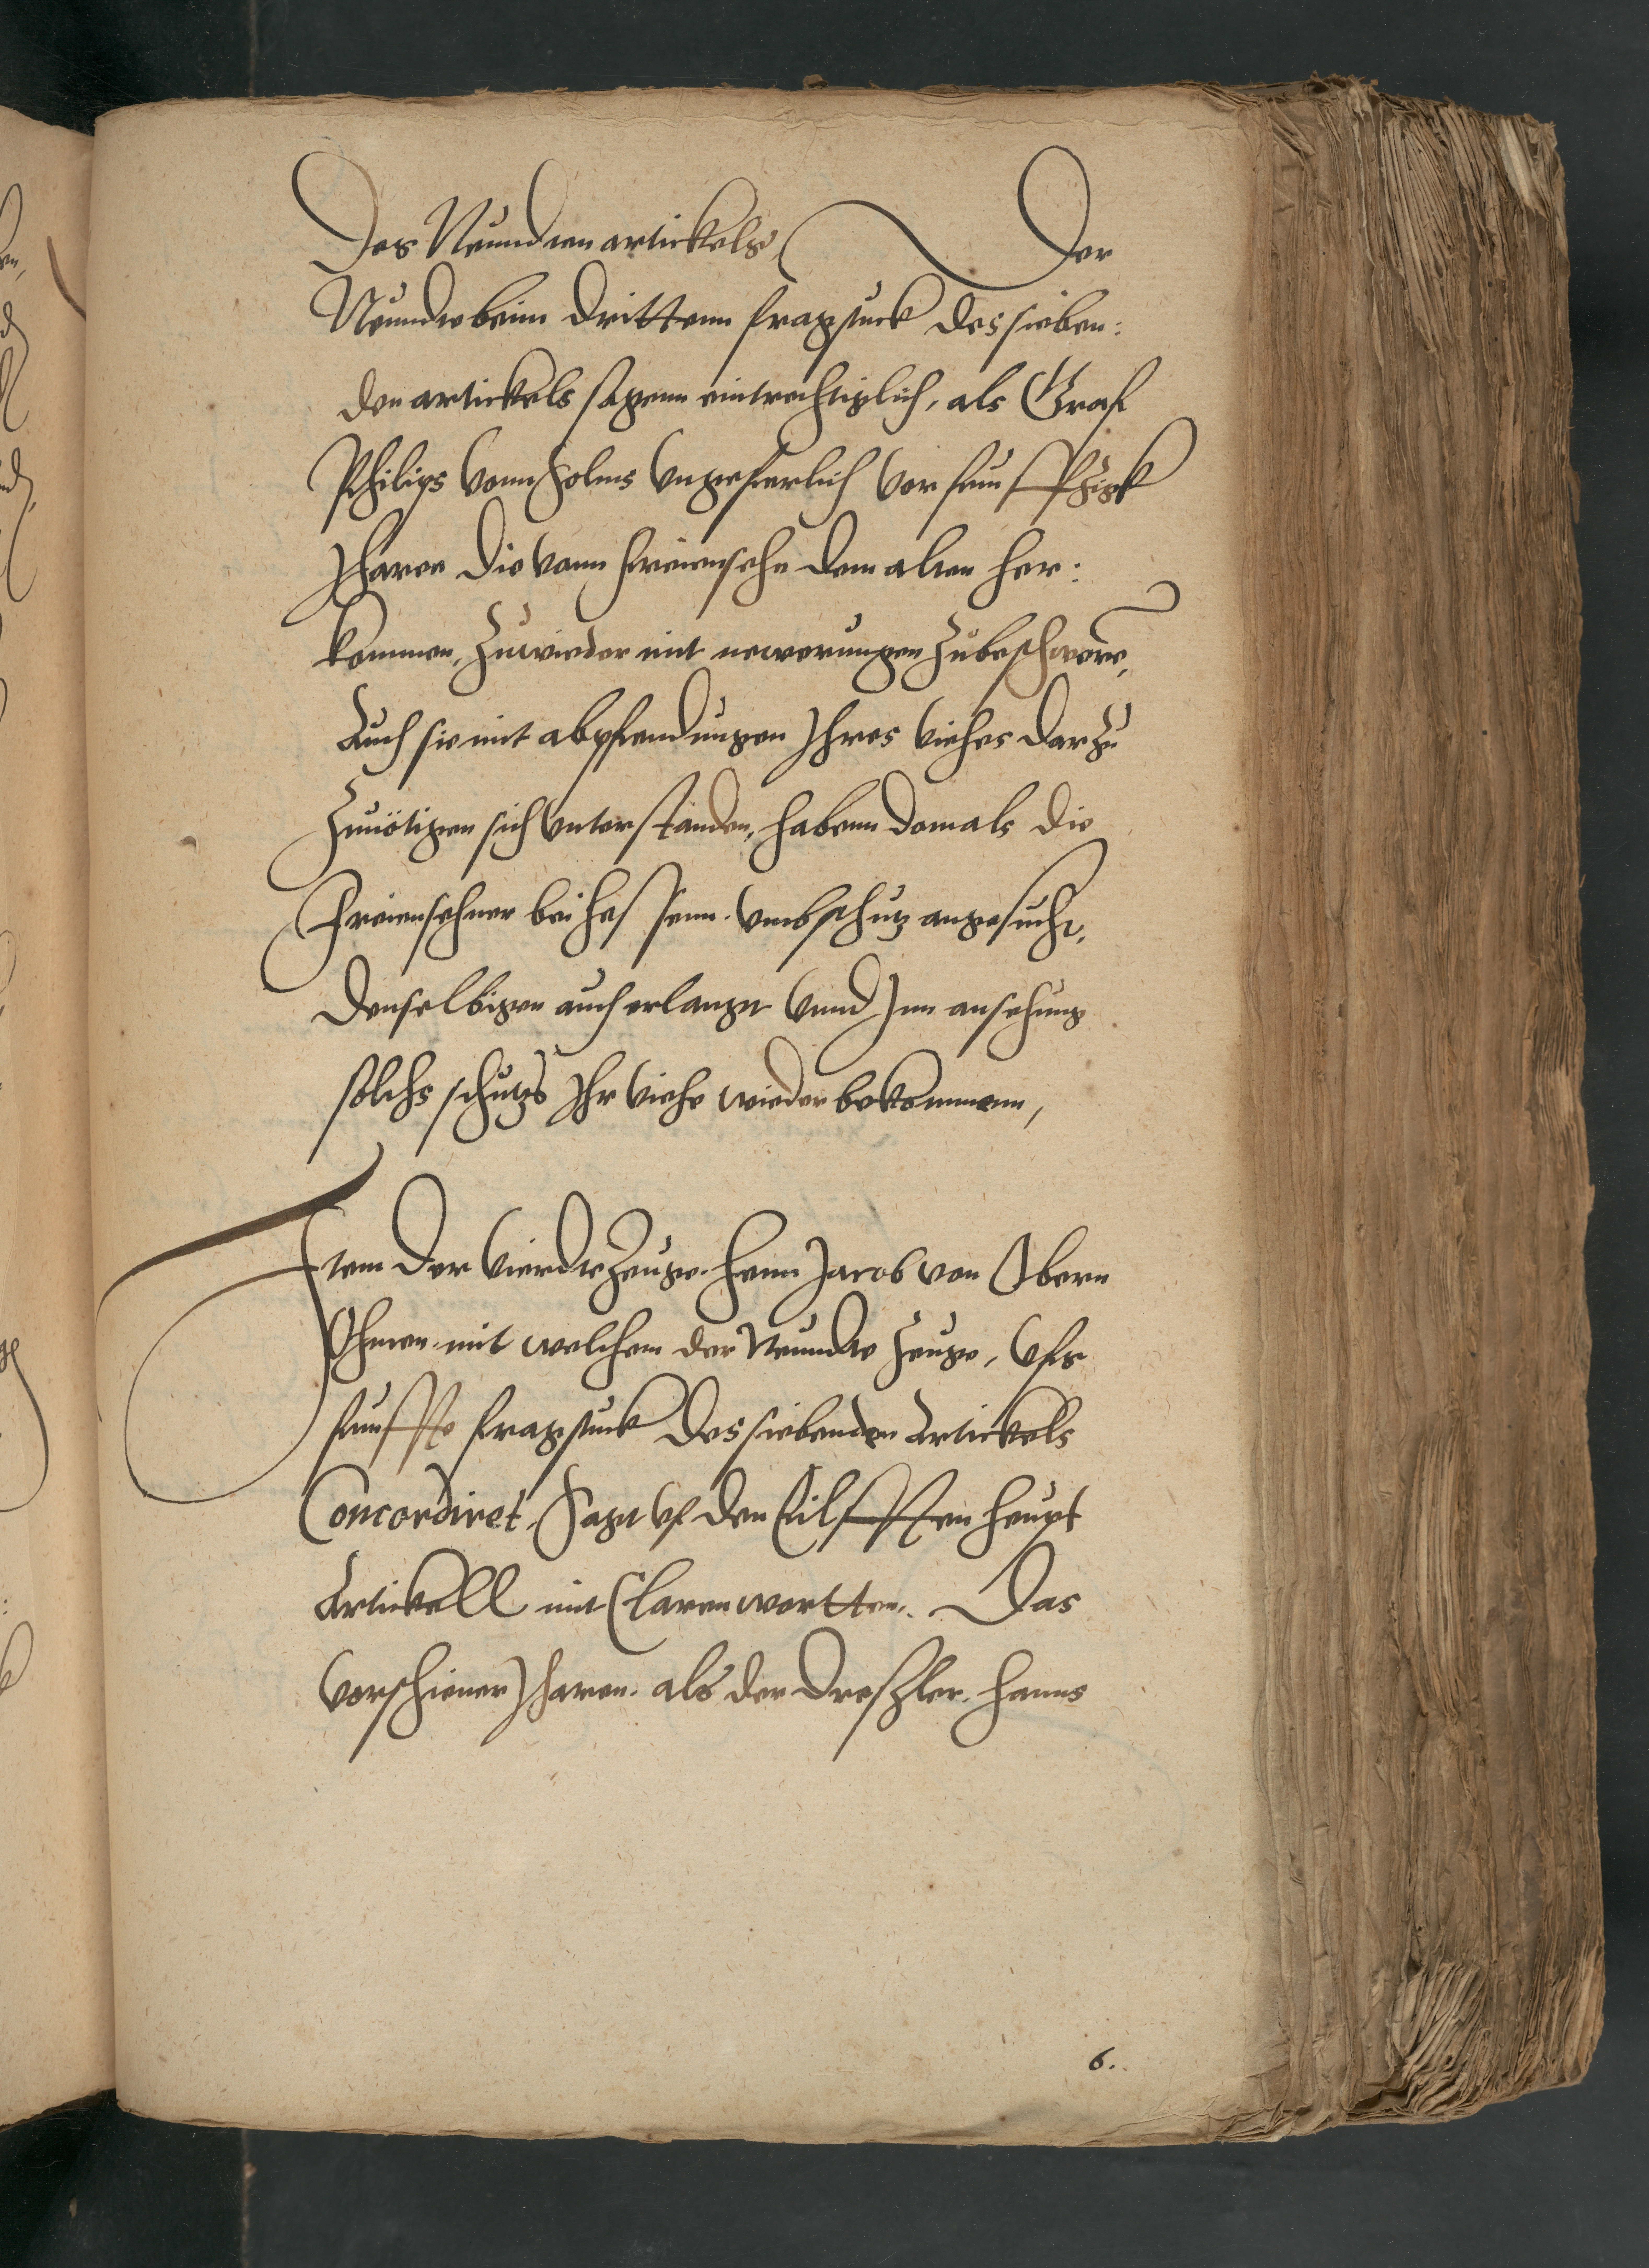 Des Neundten artickels, Der
Neundte beim dritten fragstuck des sieben:
den artickels sagenn eintrechtiglich, als Graf
Philips vonn Solms vngeferlich vor funfftzigk
Jharen die vonn Freiensehn dem alten her:
kommen, zuwieder mit newerungen zubeschwere,
Auch sie mit abpfendungen Jhres viehes darzu
zunötigen sich vnterstanden, habenn domals die
Freiensehner bei Hessenn vmb schutz angesucht,
denselbigen auch erlangt vnnd Jnn ansehung
solchs schutzs Jhr viehe wieder bekommenn,
Jtem der vierdte zeuge Henn Jacob von Obern
Ohmen mit welchem der Neundte zeuge, vfs
funffte fragstuck des siebenden Artickels
Concordiret, Sagt vf den Eilfften heupt
Artickell mit Claren wortten. Das
vorschiener Jharen als der dreszler Hanns
6.